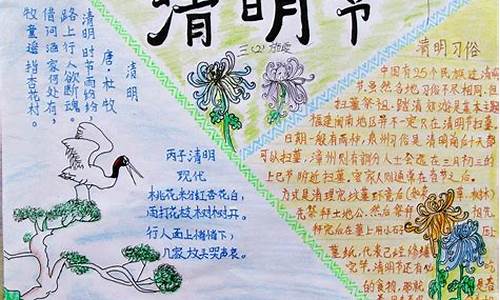 清明节
三(2)
清明
唐·杜牧
清明时节雨纷纷,
路上行人欲断魂。
借问酒家何处有,
牧童遥指杏花村。
丙子清明
现代
桃花米分红杏花白,
雨打花枝树树开。
行人面上情情下,
几家放头哭声哀。
清明习俗
中国有25个民族过清明
节,虽然各地习俗不尽相同,但
扫墓祭祖、踏清郊游是基本主
福建闽南地区并不一定只在清明节扫墓
日期一般有两种,泉州习俗是清明前后十天都
可以扫墓,漳州则有部分人士会选在三月初三的
上巳节附近扫墓,客家人则通常在春节之后。
方式是清理完坟墓环境后
先祭拜土地公,然后祭拜
拜完后在墓上用小石
董纸,代表已经修缮
完毕,清明节还有
的食物,那就